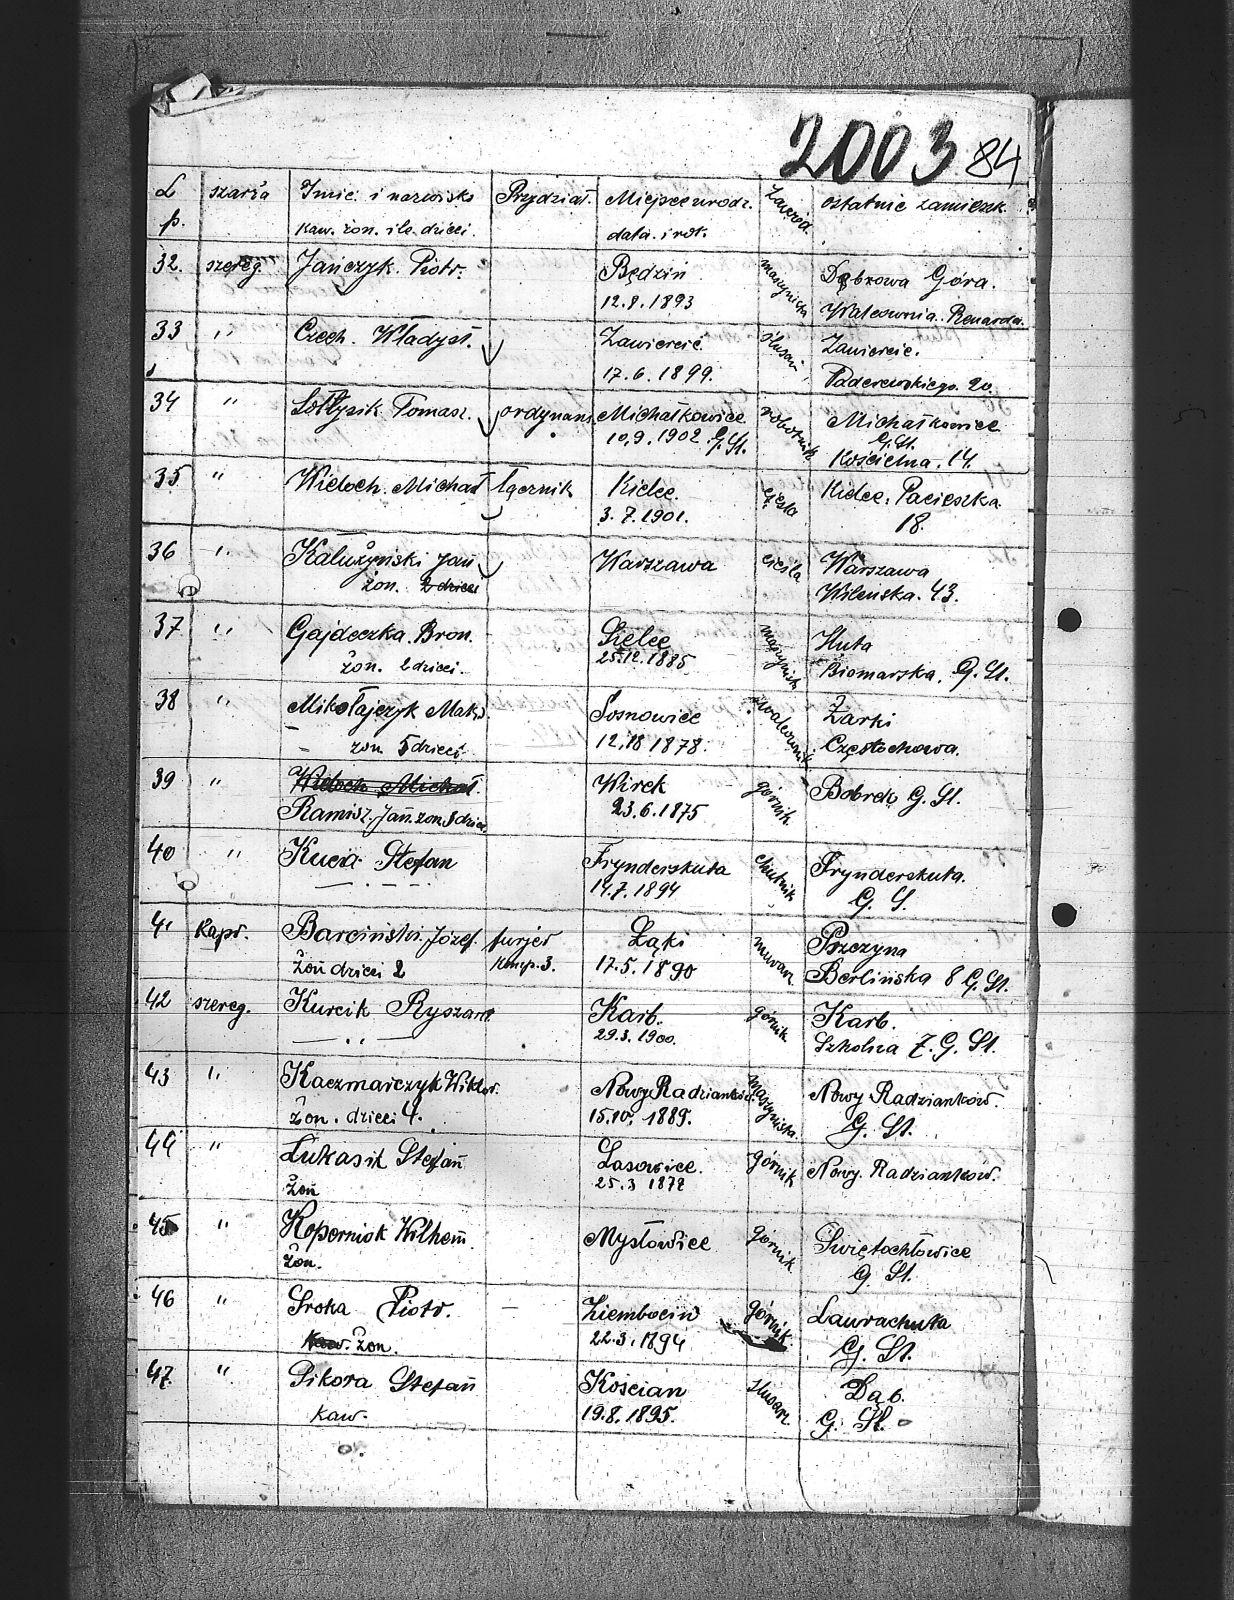 2003 84
L p. szarża Imię i nazwisko Przydział. Miejsce urodz. Zawód ostatnie zamieszk.
kaw. żon. ilo. dzieci. data i rok.
32. szereg. Jańczyk. Piotr. Będzin maszynista Dąbrowa Góra.
12.8.1893 Walcownia. Renarda.
33 " Czech. Władysł. Zawiercie. ślusarz Zawiercie.
17.6.1899. Paderewskiego. 20.
34 " Sołtysik Tomasz. ordynans. Michałkowice robotnik Michałkowice
10.9.1902 G.Śl. G.Śl.
Kościelna. 14.
35. " Wieloch. Michał łącznik Kielce. cieśla Kielce. Pacieszka
3.7.1901. 18.
36 " Kałużyński Jań Warszawa cieśla Warszawa
żon. 2 dzieci Wileńska. 43.
37 " Gajdeczka. Bron. maszynista Huta
żon. 2 dzieci. 25.12.1885 G. Śl.
38 " Mikołajczyk Maks. Sosnowice Żarki
żon 5 dzieci. 12.10 1878. Częstochowa.
39 " Wieloch Michał. Wirek górnik. Bobrek G. Śl.
Ramisz. Jań. żon 3 dzieci 23.6.1875
40 " Kucia Stefan Frynderskuta Frynderskuta.
14.7.1894 G. Ś.
41 Kapr. Barciński. Józef. furjer Łąki murarz Pszczyna
żoń dzieci 2 Komp. 3. 17.5.1890 Berlińska 8 G. Śl.
42 szereg. Kurcik Ryszard Karb. górnik Karb.
29.3.1900. Szkolna 7. G. Śl.
43 " Kaczmarczyk Wiktor. Nowy Radzianków maszynista. Nowy Radzianków.
żon. dzieci 4. 15.10.1889. G. Śl.
44 " Łukasik Stefań Lasowice. górnik Nowy. Radzianków.
żoń 25.3 1878
45 " Koperniok Wilhem Mysłowice górnik Świętochłowice
żon. G Śl.
46 " Sroka Piotr. — Ziembocin górnik. Laurachuta
kaw. żon. 22.3.1894 G. Śl.
47. " Sikora Stefań Kościan ślusarz Dąb.
kaw. 19.8.1895. G. Śl.